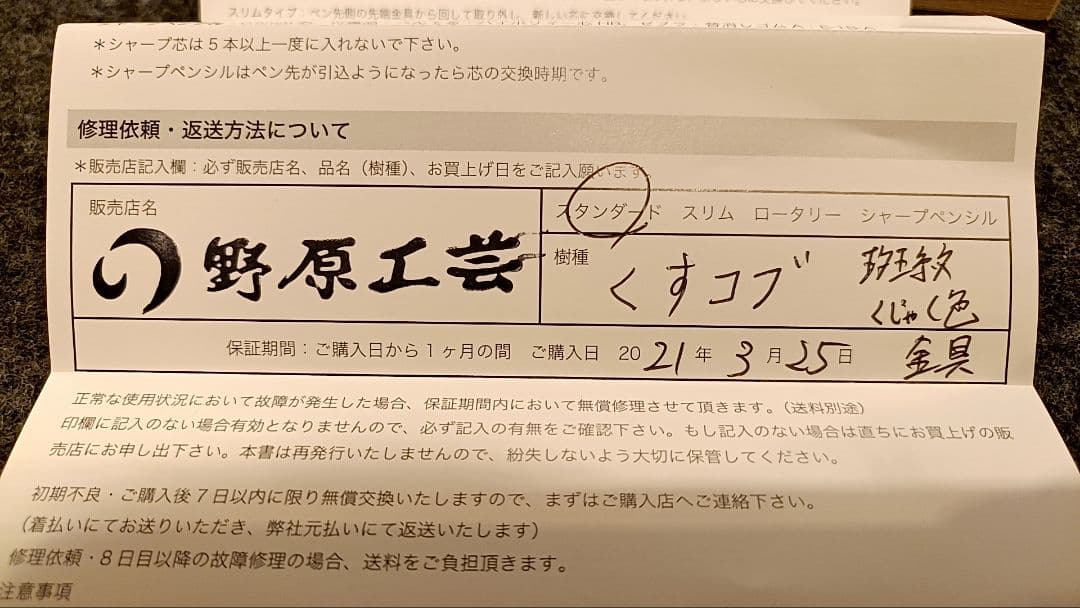 スリムタイプ：ペン先側の先端金具から回して取り外し、新しい芯に交換してください。
＊シャープ芯は５本以上一度に入れないで下さい。
＊シャープペンシルはペン先が引込ようになったら芯の交換時期です。
修理依頼・返送方法について
＊販売店記入欄：必ず販売店名、品名（樹種）、お買上げ日をご記入願います。
販売店名
野原工芸
スタンダード スリム ロータリー シャープペンシル
樹種
くすコブ
斑紋
くじゃく色
金具
保証期間：ご購入日から１ヶ月の間 ご購入日 2021年 3月25日
正常な使用状況において故障が発生した場合、保証期間内において無償修理させて頂きます。（送料別途）
印欄に記入のない場合有効となりませんので、必ず記入の有無をご確認下さい。もし記入のない場合は直ちにお買上げの販
売店にお申し出下さい。本書は再発行いたしませんので、紛失しないよう大切に保管してください。
初期不良・ご購入後７日以内に限り無償交換いたしますので、まずはご購入店へご連絡下さい。
（着払いにてお送りいただき、弊社元払いにて返送いたします）
修理依頼・８日目以降の故障修理の場合、送料をご負担頂きます。
注意事項